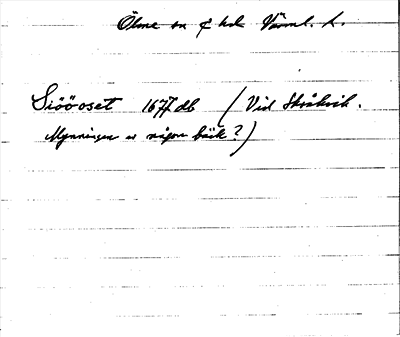 Ölme sn o hd Värml. l.
Siööoset 1677 db (Vid Skråkvik.
Mynningen av någon bäck?)